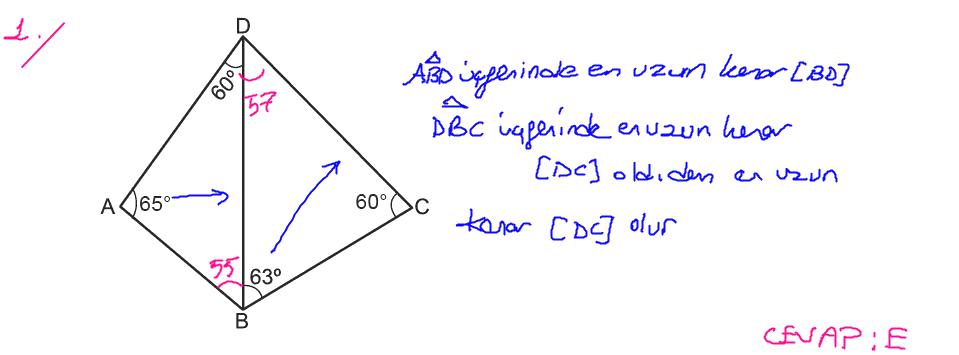 1.
D
60°
57
ABD üçgeninde en uzun kenar [BD]
DBC üçgeninde en uzun kenar
[DC] old.den en uzun
kenar [DC] olur
A 65°
60° C
55 63°
B
CEVAP: E